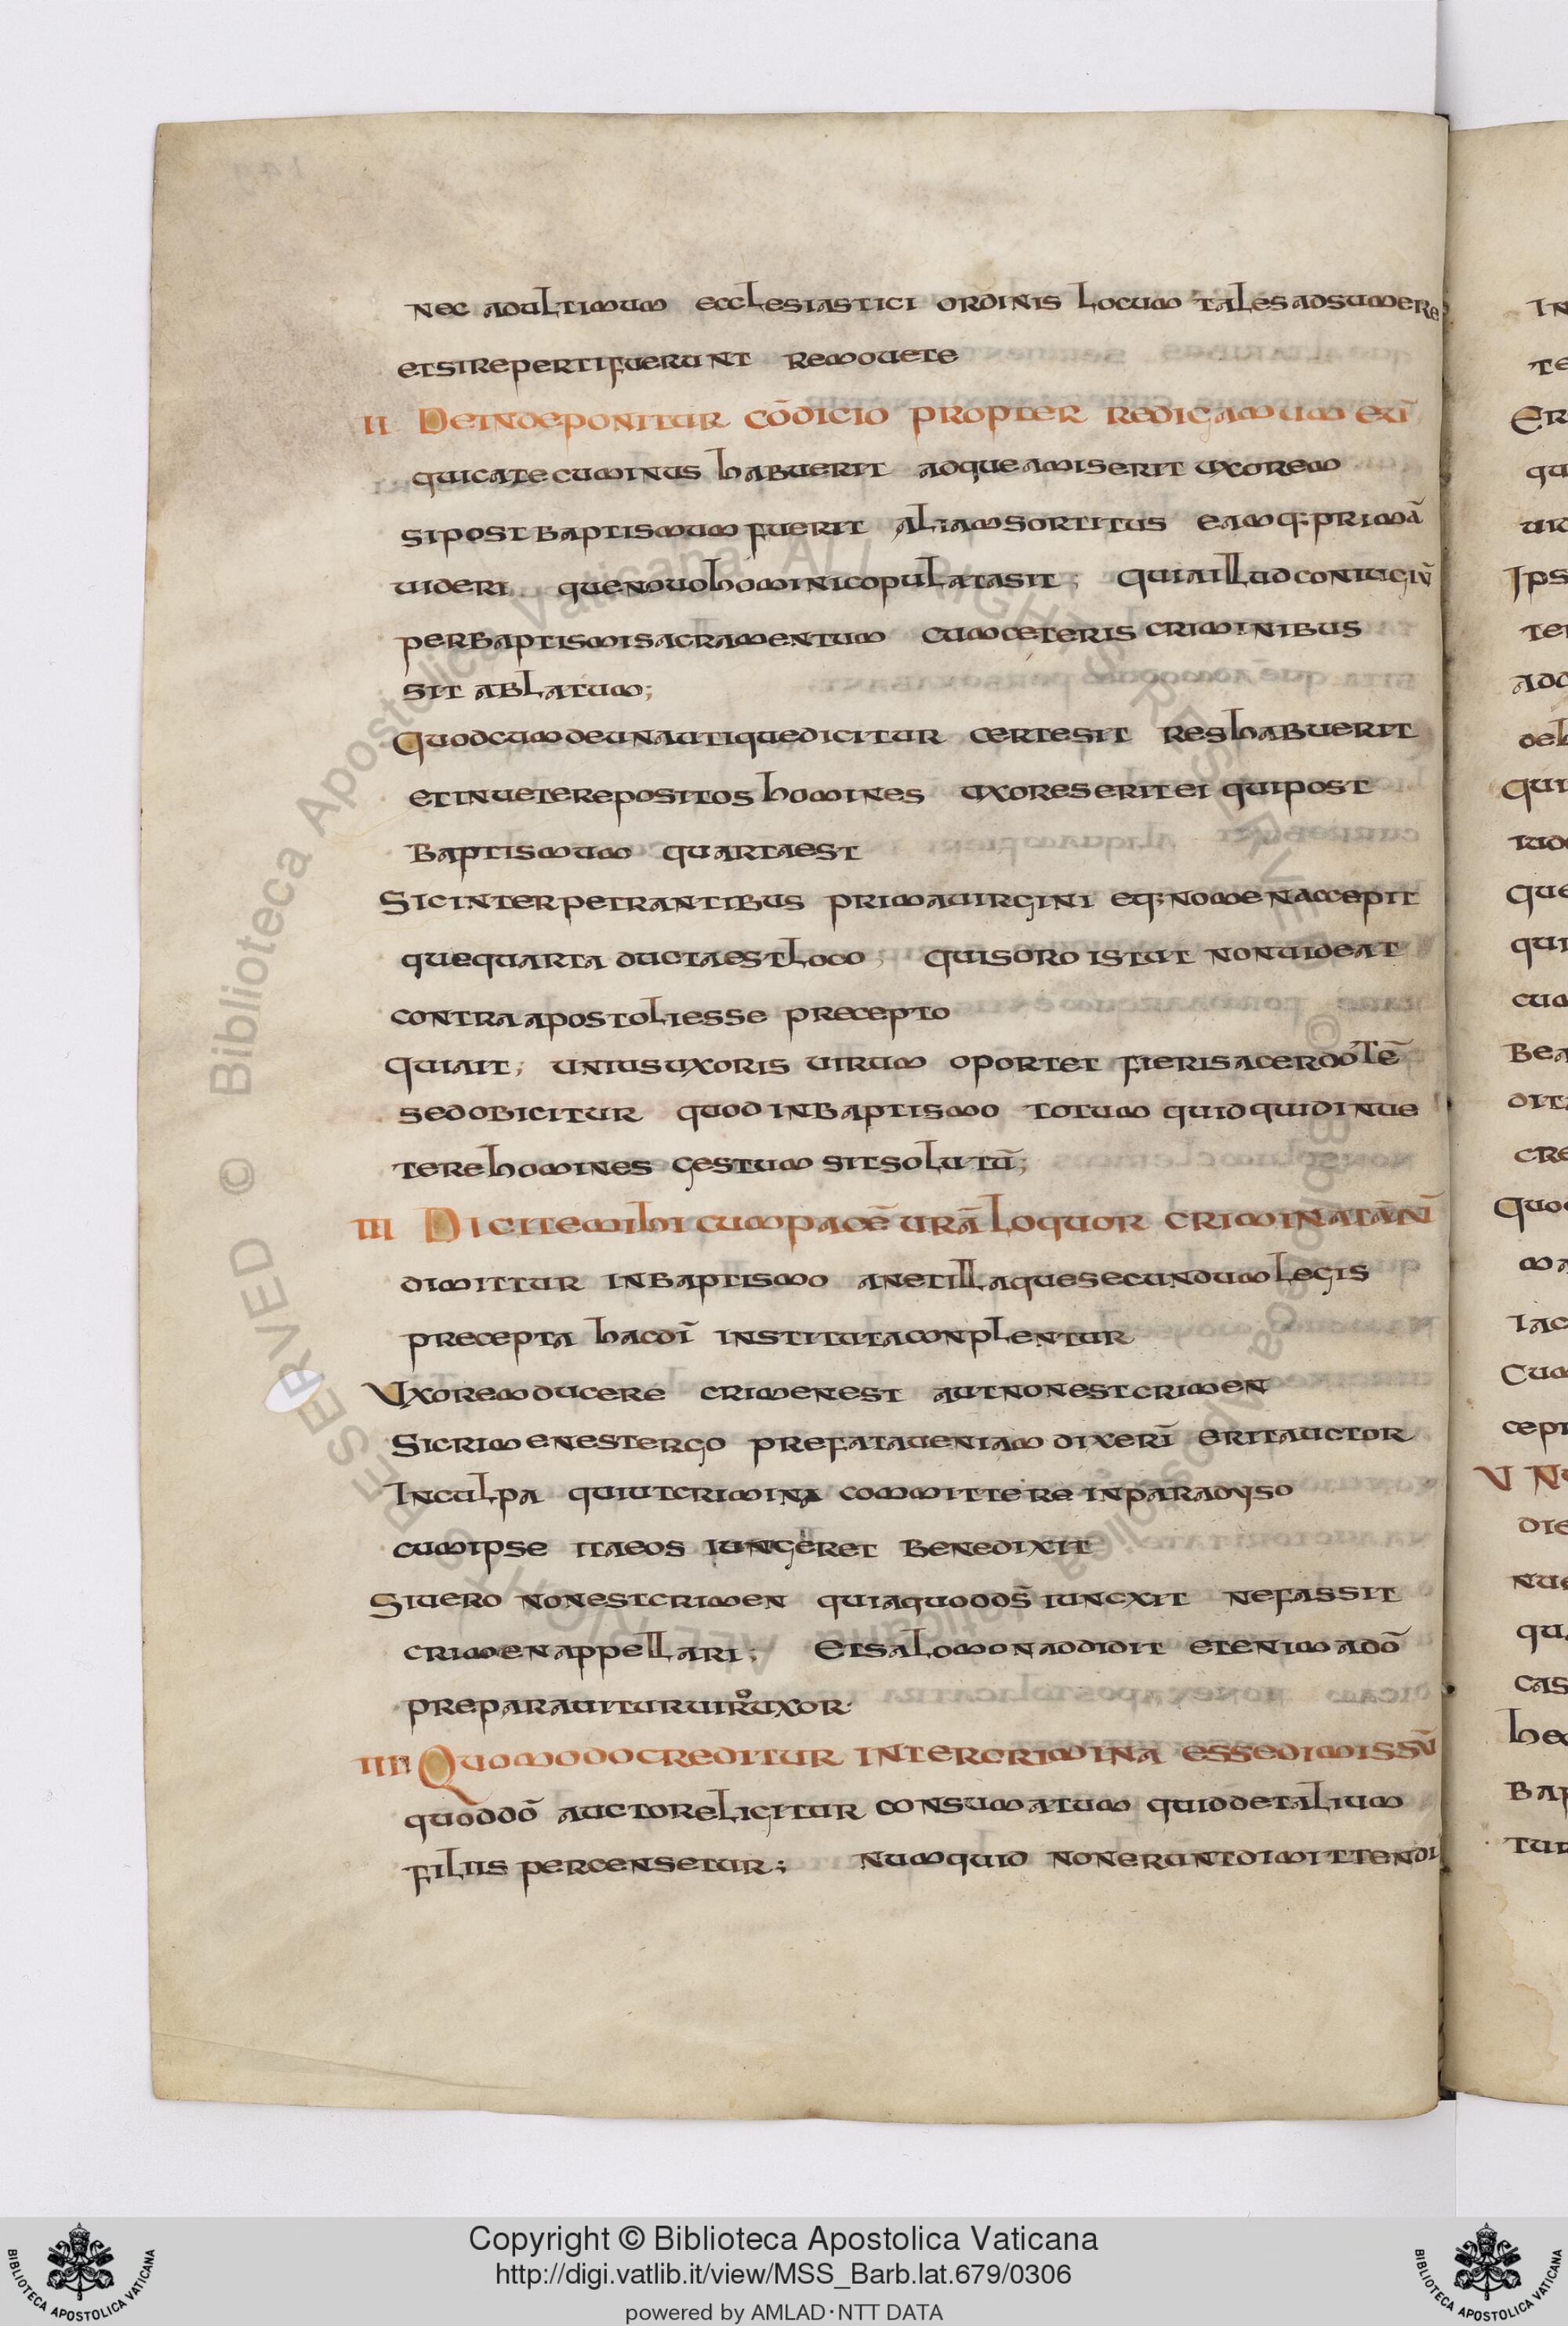 nec adultimum ecclesiastici ordinis locum tales adsumere
et si reperti fuerunt remouete
II Deinde ponitur cōdicio propter redigamum eū
qui catecuminus habuerit adque amiserit uxorem
si post baptismum fuerit aliam sortitus eamq; primā
uideri que nouo homini copulata sit; quia illud coniugiū
per baptismi sacramentum cum ceteris criminibus
sit ablatum;
Quod cum de una utique dicitur certe sit res habuerit
et in uetere positos homines uxores erit ei qui post
baptismum quarta est
Sic interpetrantibus prima uirgini eq; nomen accepit
que quarta ducta est loco; quis oro istut non uideat
contra apostoli esse precepto
qui ait; unius uxoris uirum oportet fieri sacerdotē
sed obicitur quod in baptismo totum quidquid in ue
tere homines gestum sit solutū;
III Dicite mihi cum pacē urā loquor crimina tān̄
dimittur in baptismo anet illa que secundum legis
precepta hac dī instituta conplentur
Uxorem ducere crimen est aut non est crimen
Si crimen est ergo prefata ueniam dixerī erit auctor
In culpa qui ut crimina committere in paradyso
cum ipse ita eos iungeret benedixit
Si uero non est crimen quia quod d̄s iuncxit nefas sit
crimen appellari; Et salomon addidit etenim a dō
preparauitur uiro uxor·
IIII Quomodo creditur inter crimina esse dimissū
quod dō auctore ligitur consumatum quid de talium
filiis percensetur; Numquid non erunt dimittendi
Copyright © Biblioteca Apostolica Vaticana
http://digi.vatlib.it/view/MSS_Barb.lat.679/0306
powered by AMLAD·NTT DATA